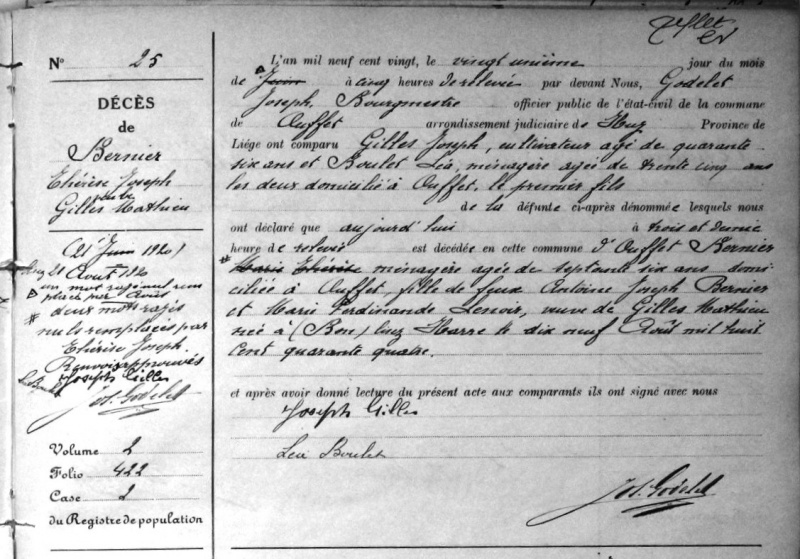 Nº 25
DÉCÈS
de
Bernier
Thérèse Joseph
veuve
Gilles Mathieu
(21 Juin 1920)
21 Août 1920
un mot rayé nul rem
placé par Août
# deux mots rayés
nuls remplacés par
Thérèse Joseph.
Renvois approuvés
Joseph Gilles
Lea Boulet
Jos. Godelet
Volume 2
Folio 422
Case 2
du Registre de population
L'an mil neuf cent vingt, le vingt unième jour du mois
de Juin à cinq heures de relevée par devant Nous, Godelet
Joseph Bourgmestre officier public de l'état-civil de la commune
de Ouffet arrondissement judiciaire de Huy Province de
Liége ont comparu Gilles Joseph, cultivateur agé de quarante
six ans et Boulet Léa, ménagère agée de trente cinq ans
les deux domicilié à Ouffet, le premier fils
de la défunte ci-après dénommée lesquels nous
ont déclaré que aujourd'hui à trois et demie
heure de relevée est décédée en cette commune d'Ouffet Bernier
# Marie Thérèse ménagère agée de septante six ans domi-
ciliée à Ouffet, fille de feux Antoine Joseph Bernier
et Marie Ferdinande Lenoir, veuve de Gilles Mathieu
née à (Bon) Huy Harre le dix neuf Août mil huit
cent quarante quatre.
et après avoir donné lecture du présent acte aux comparants ils ont signé avec nous
Joseph Gilles
Lea Boulet
Jos. Godelet